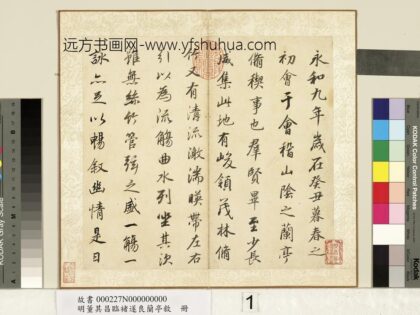 远方书画网-www.yfshuhua.com
永和九年歲在癸丑暮春之
初會于會稽山陰之蘭亭
脩稧事也羣賢畢至少長
咸集此地有峻領茂林脩
竹又有清流激湍暎帶左右
引以為流觴曲水列坐其次
雖無絲竹管弦之盛一觴一
詠亦足以暢叙幽情是日
故書 000227N000000000
明董其昌臨褚遂良蘭亭敘 冊
1
KODAK Color Control Patches
Kodak